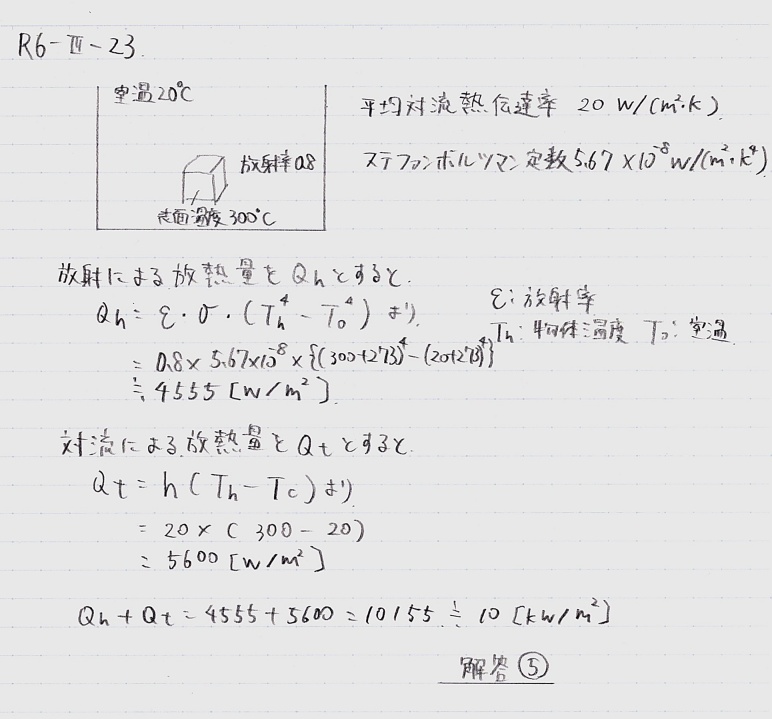 R6-Ⅲ-23.
室温20℃
放射率0.8
表面温度300℃
平均対流熱伝達率 20 W/(m²・K)
ステファンボルツマン定数5.67×10⁻⁸W/(m²・K⁴)
放射による放熱量をQhとすると.
Qh = ε・σ・(Th⁴ - To⁴) より.
ε: 放射率
Th: 物体温度 To: 室温
= 0.8 × 5.67×10⁻⁸ × {(300+273)⁴-(20+273)⁴}
≒ 4555 [W/m²].
対流による放熱量をQtとすると.
Qt = h (Th - Tc) より
= 20 × (300 - 20)
= 5600 [W/m²]
Qh + Qt = 4555 + 5600 = 10155 ≒ 10 [kW/m²]
解答 ⑤